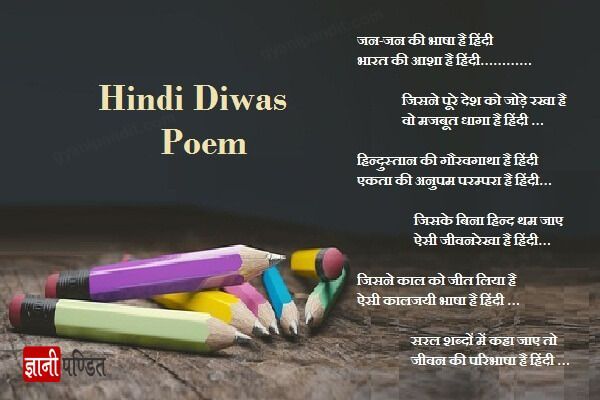 Hindi Diwas
Poem
जन-जन की भाषा है हिंदी
भारत की आशा है हिंदी............
जिसने पूरे देश को जोड़े रखा है
वो मजबूत धागा है हिंदी ...
हिन्दुस्तान की गौरवगाथा है हिंदी
एकता की अनुपम परम्परा है हिंदी...
जिसके बिना हिन्द थम जाए
ऐसी जीवनरेखा है हिंदी...
जिसने काल को जीत लिया है
ऐसी कालजयी भाषा है हिंदी ...
सरल शब्दों में कहा जाए तो
जीवन की परिभाषा है हिंदी ...
ज्ञानी पण्डित
gyanipandit.com
gyanipandit.com